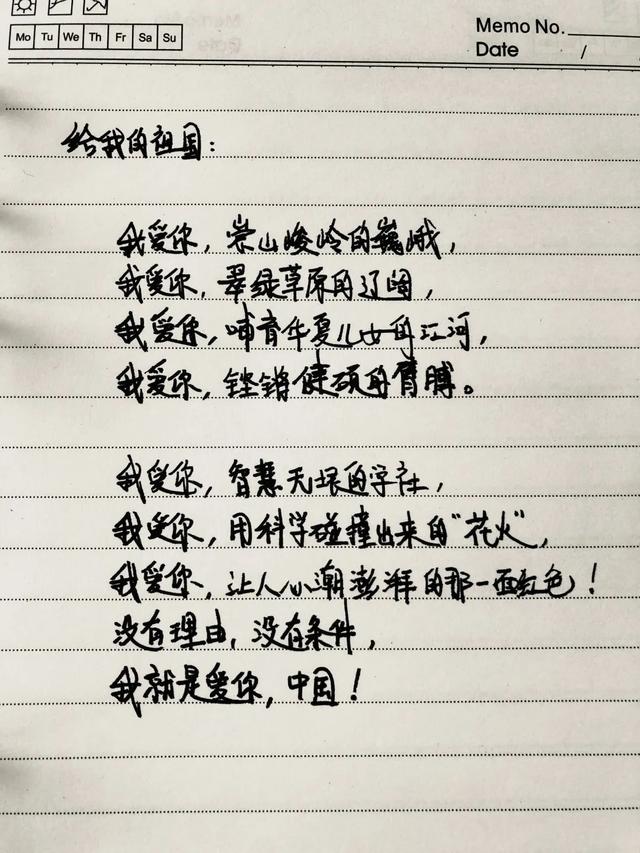 Mo Tu We Th Fr Sa Su
Memo No.
Date /
给我的祖国：
我爱你，崇山峻岭的巍峨，
我爱你，翠绿草原的辽阔，
我爱你，哺育华夏儿女的江河，
我爱你，铿锵健硕的臂膊。
我爱你，智慧无垠的学社，
我爱你，用科学碰撞出来的“花火”，
我爱你，让人心潮澎湃的那一面红色！
没有理由，没有条件，
我就是爱你，中国！